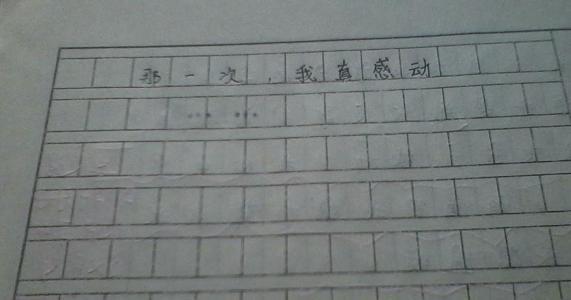 那一次，我真感动
……